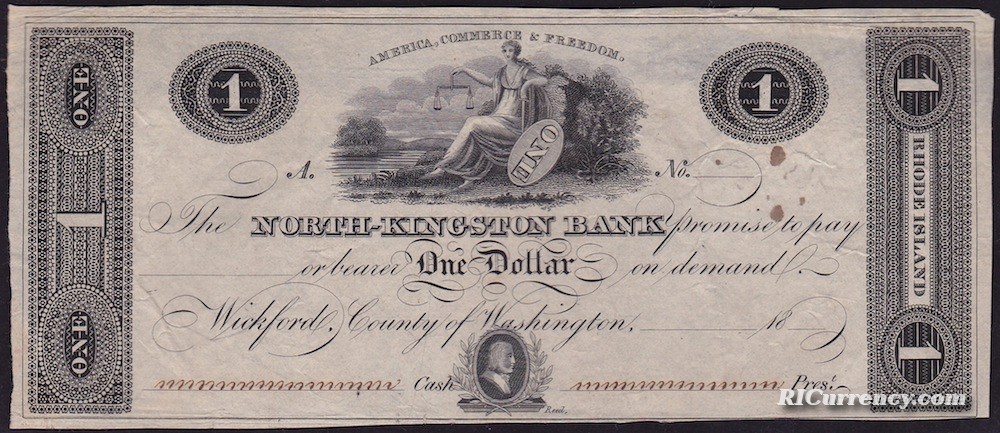 AMERICA, COMMERCE & FREEDOM.
ONE 1 ONE
1
1
ONE
A. No.
The NORTH-KINGSTON BANK promise to pay
or bearer One Dollar on demand.
Wickford, County of Washington, 18
Cash Prest.
Reed,
1 RHODE ISLAND 1
RICurrency.com